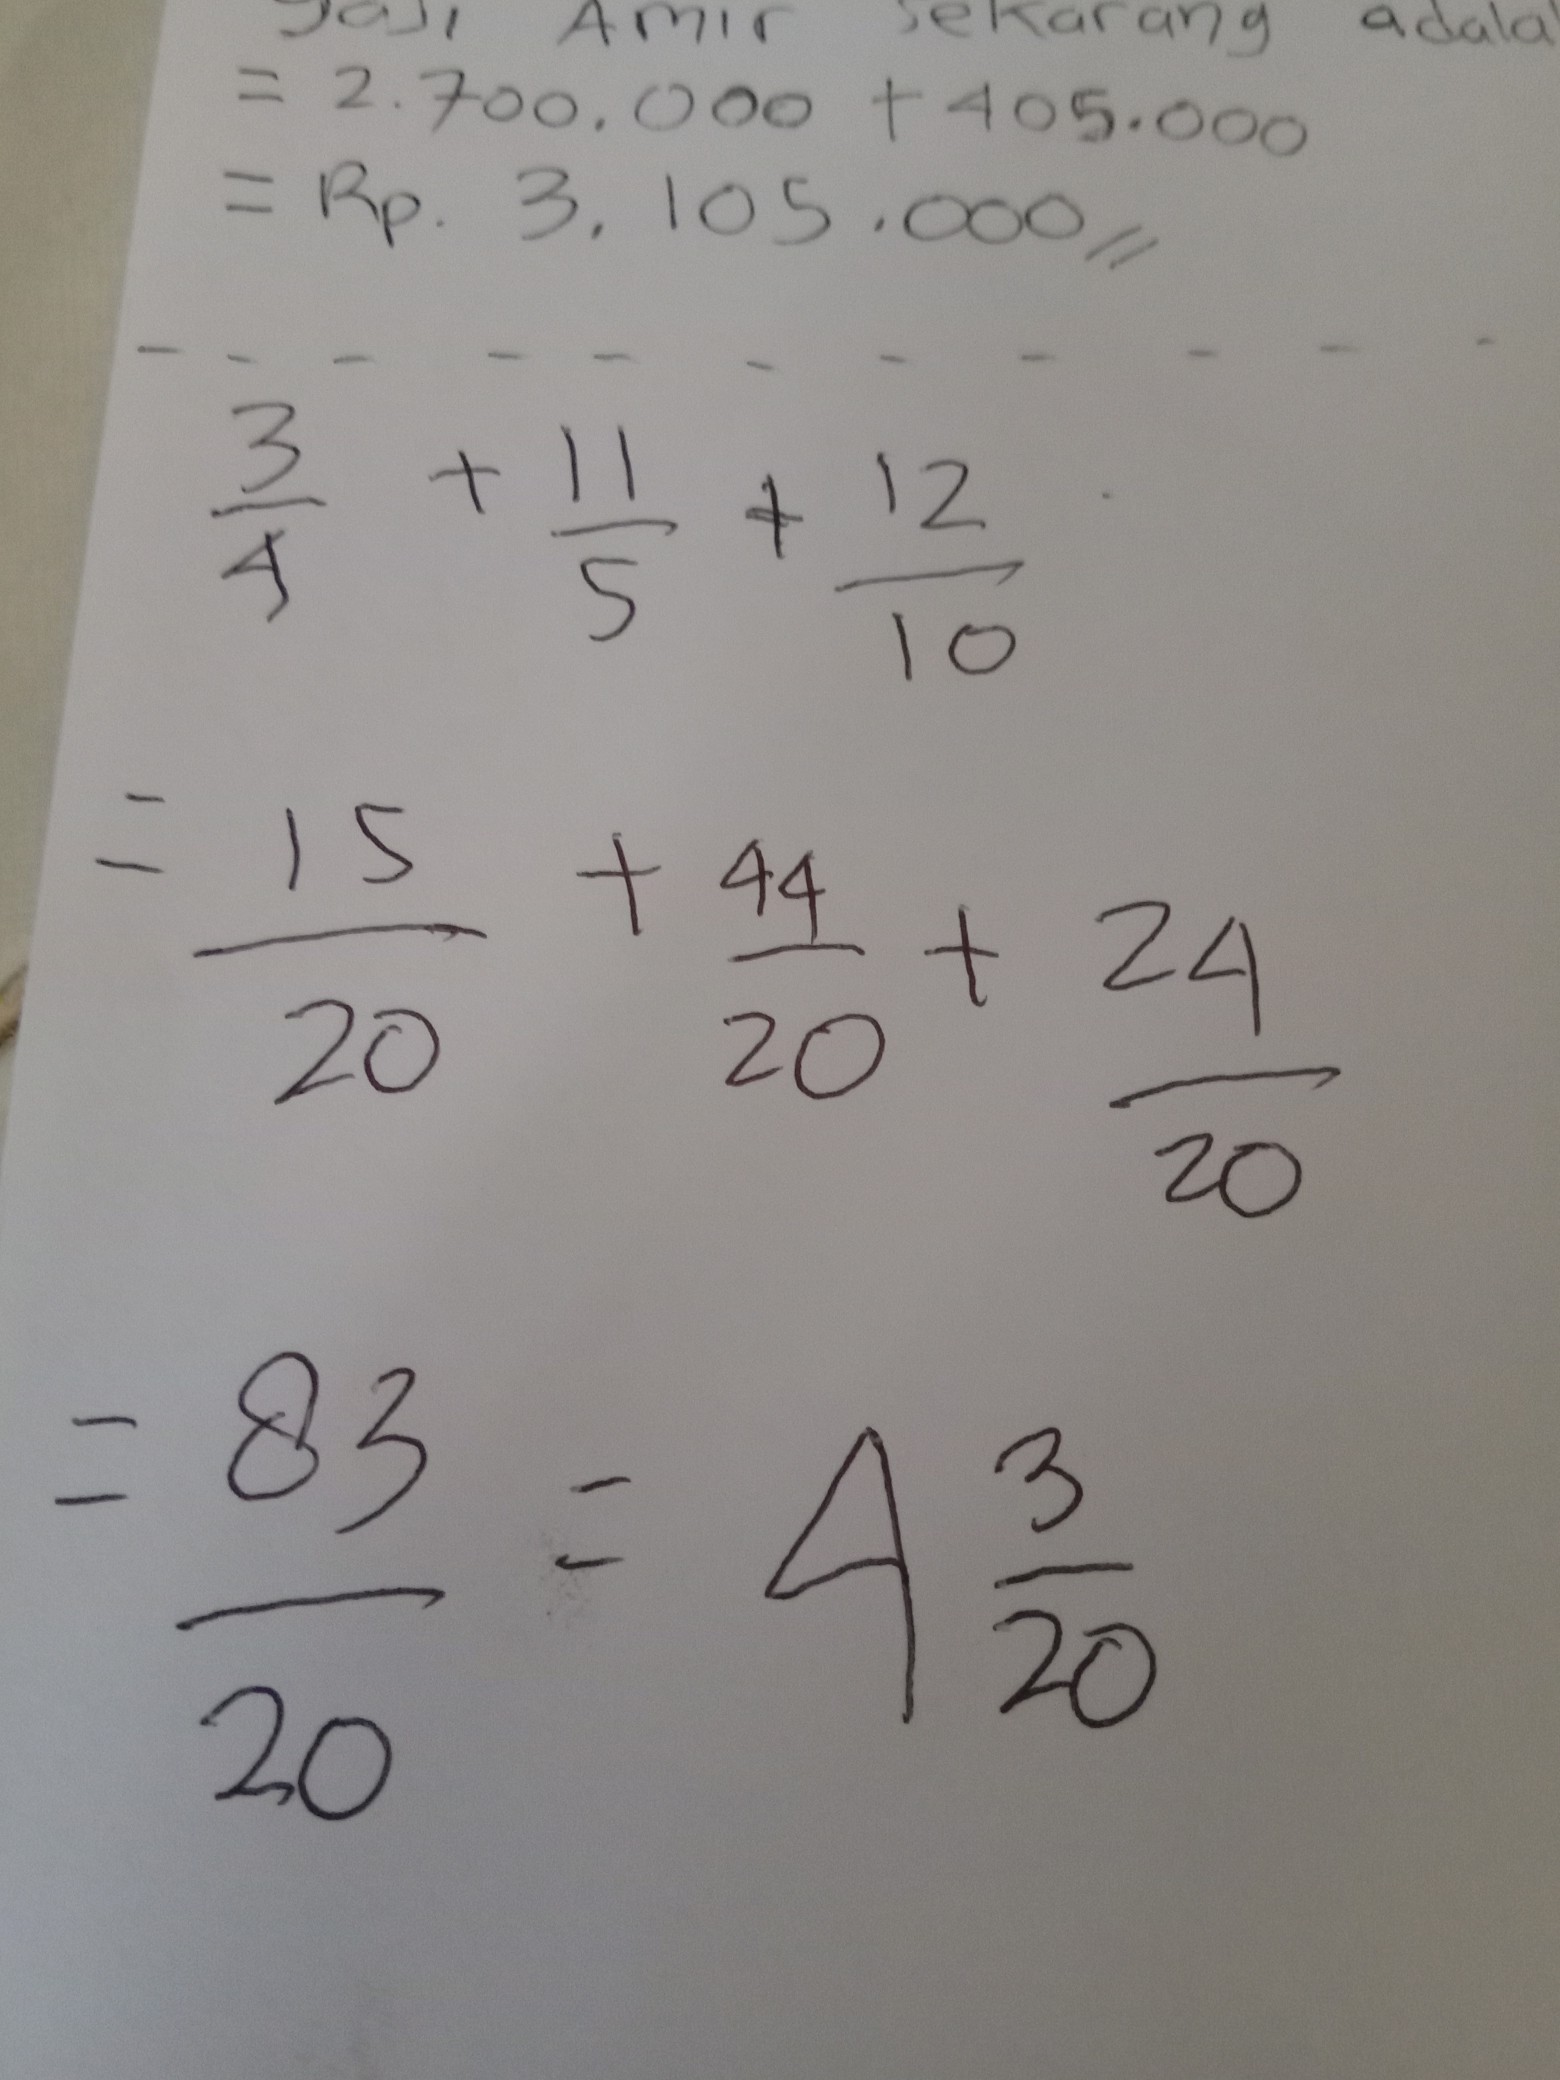 gaji Amir sekarang adala
= 2.700.000 + 405.000
= Rp. 3.105.000 //
3/4 + 11/5 + 12/10
= 15/20 + 44/20 + 24/20
= 83/20 = 4 3/20